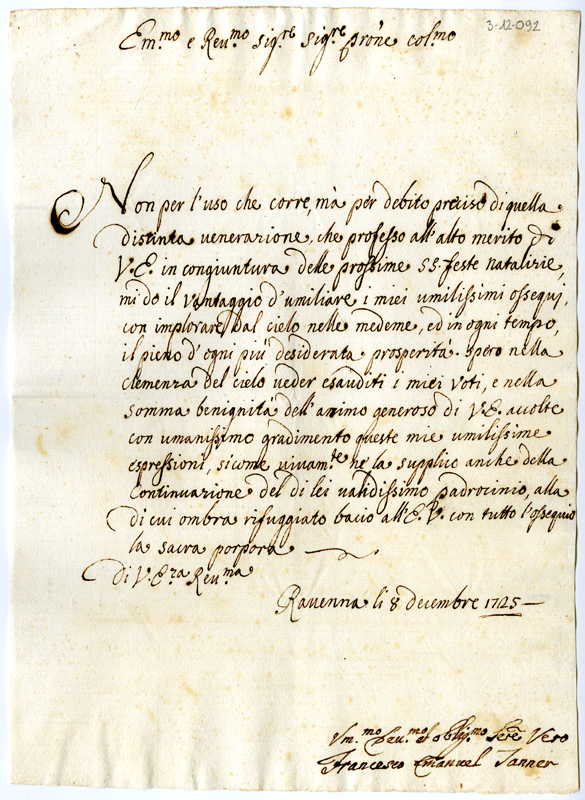 3-12-092
Em.mo e Reu.mo sig.re sig.re prõne col.mo
Non per l'uso che corre, mà per debito preciso di quella
distinta uenerazione, che professo all'alto merito di
V.E. in congiuntura delle prossime SS. feste natalizie,
mi do il vantaggio d'umiliare i miei umilissimi ossequi,
con implorare dal cielo nelle medeme, ed in ogni tempo,
il pieno d'ogni più desiderata prosperità. Spero nella
clemenza del cielo ueder esauditi i miei voti, e nella
somma benignità dell'animo generoso di V.E. accolte
con umanissimo gradimento queste mie umilissime
espressioni, sicome uiuam.te ne la supplico anche della
Continuazione del di lei ualidissimo padrocinio, alla
di cui ombra rifuggiato bacio all'E.V. con tutto l'ossequio
la sacra porpora
di V.E.za Reu.ma
Rauenna li 8 decembre 1725
Vm.mo Deu.mo Obblig.mo Serẽ Vero
Francesco Emanuel Tanner